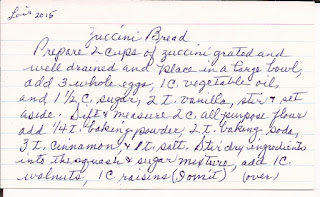 Lois 2015
Zuccini Bread
Prepare 2 cups of zuccini grated and
well drained and place in a large bowl,
add 3 whole eggs, 1 C. vegetable oil,
and 1 1/2 C. sugar, 2 t. vanilla, stir & set
aside. Sift & measure 2 C. all purpose flour
add 1/4 t. baking powder, 2 t. baking soda,
3 t. cinnamon, & 1 t. salt. Stir dry ingredients
into the squash & sugar mixture, add 1 C.
walnuts, 1 C raisins (I omit) (over)